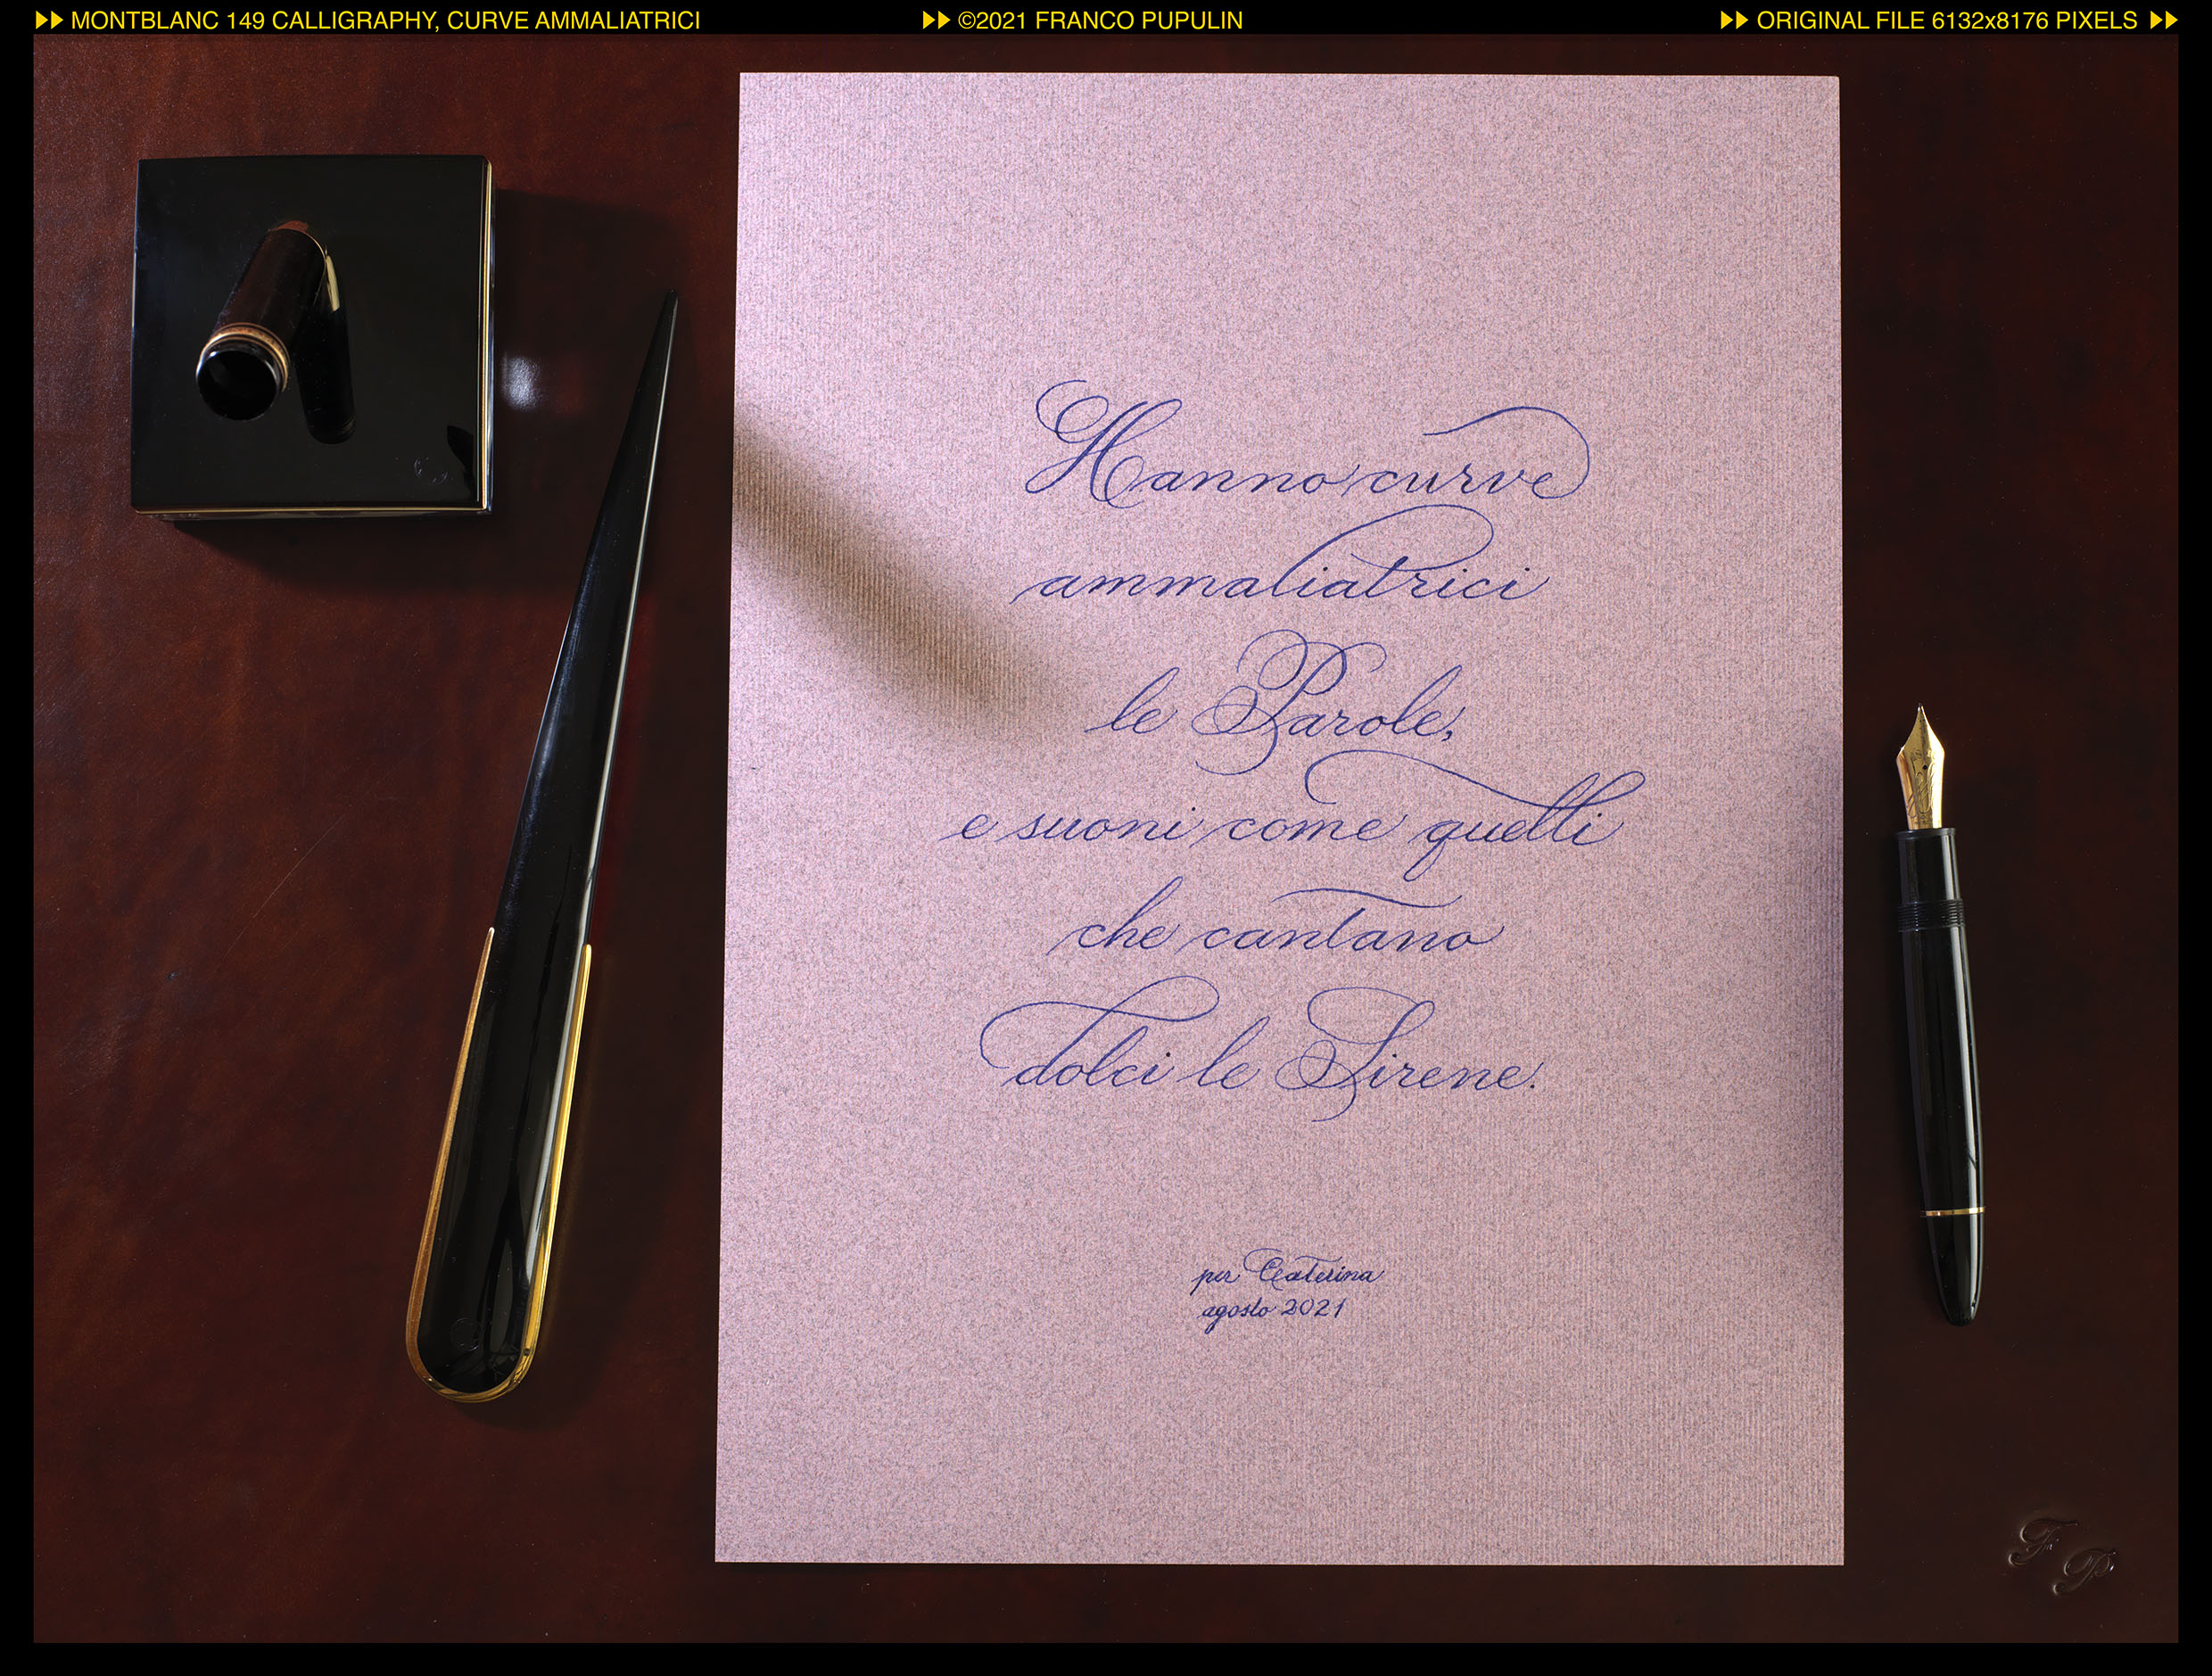 MONTBLANC 149 CALLIGRAPHY, CURVE AMMALIATRICI
©2021 FRANCO PUPULIN
ORIGINAL FILE 6132x8176 PIXELS
Hanno curve
ammaliatrici
le Parole,
e suoni come quelli
che cantano
dolci le Sirene.
per Caterina
agosto 2021
F P